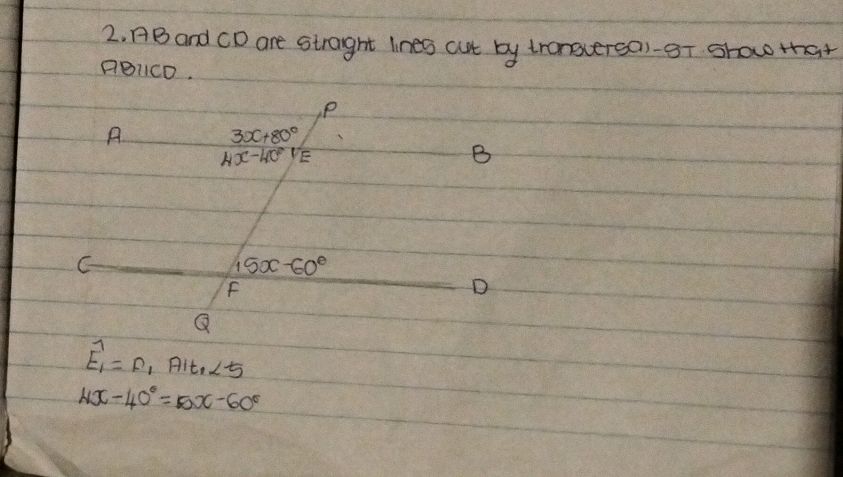 2. AB and CD are straight lines cut by transversal-ST show that
AB||CD.
P
A 3x+80°
4x-40° 1 E B
C 1 5x-60°
F D
Q
Ê₁ = D₁ Alt.∠s
4x-40° = 5x-60°